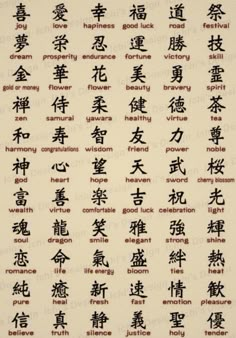 喜 愛 幸 福 道 祭
joy love hapiness good luck road festival
夢 栄 忍 運 勝 技
dream prosperity endurance fortune victory skill
金 華 花 美 勇 霊
gold or money flower flower beauty bravery spirit
禅 侍 柔 健 徳 茶
zen samurai yawara healthy virtue tea
和 寿 智 友 力 尊
harmony congratulations wisdom friend power noble
神 心 望 天 武 桜
god heart hope heaven sword cherry blossom
富 善 楽 吉 祝 光
wealth virtue comfortable good luck celebration light
魂 龍 笑 雅 強 輝
soul dragon smile elegance strong shine
恋 命 氣 盛 絆 熱
romance life life energy bloom ties heat
純 癒 新 速 情 歓
pure heal fresh fast emotion pleasure
信 真 静 義 聖 優
believe truth silence justice holy tender